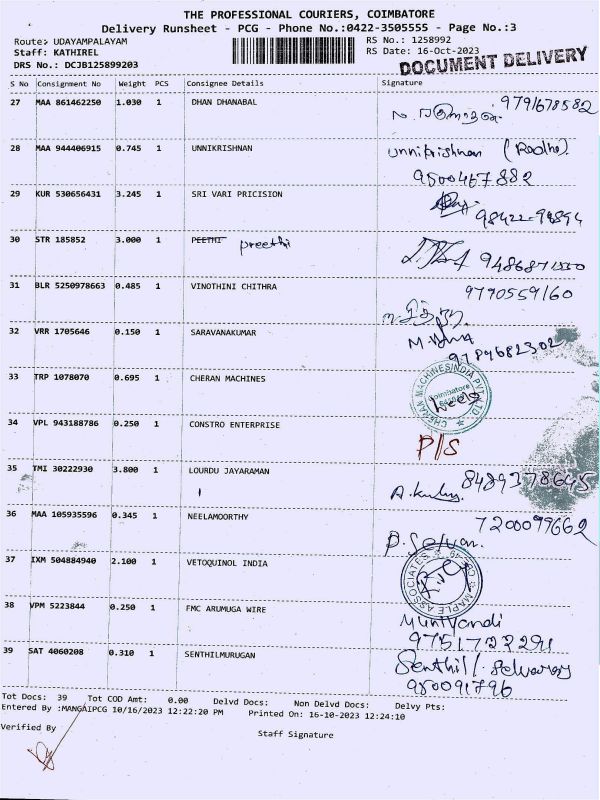 THE PROFESSIONAL COURIERS, COIMBATORE
Delivery Runsheet - PCG - Phone No.:0422-3505555 - Page No.:3
Route: UDAYAMPALAYAM RS No.: 1258992
Staff: KATHIREL RS Date: 16-Oct-2023
DRS No.: DCJB125899203 DOCUMENT DELIVERY
S No Consignment No Weight PCS Consignee Details Signature
27 MAA 861462250 1.030 1 DHAN DHANABAL 9791678582
28 MAA 944406915 0.745 1 UNNIKRISHNAN unnikrishnan (Radha).
9500467882
29 KUR 530656431 3.245 1 SRI VARI PRICISION
98422-98894
30 STR 185852 3.000 1 PEETHI preethi
31 BLR 5250978663 0.485 1 VINOTHINI CHITHRA 9790559160
32 VRR 1705646 0.150 1 SARAVANAKUMAR
9789682302
33 TRP 1078070 0.695 1 CHERAN MACHINES CHERAN MACHINES INDIA PVT LTD Coimbatore
34 VPL 943188786 0.250 1 CONSTRO ENTERPRISE
P/S
35 TMI 30222930 3.800 1 LOURDU JAYARAMAN 8489378645
36 MAA 105935596 0.345 1 NEELAMOORTHY 7200099662
B. Selvan.
37 IXM 504884940 2.100 1 VETOQUINOL INDIA MAPLE ASSOCIATES
38 VPM 5223844 0.250 1 FMC ARUMUGA WIRE
Muniyandi
9751723291
39 SAT 4060208 0.310 1 SENTHILMURUGAN Senthil
980091796
Tot Docs: 39 Tot COD Amt: 0.00 Delvd Docs: Non Delvd Docs: Delvy Pts:
Entered By :MANGAIPCG 10/16/2023 12:22:20 PM Printed On: 16-10-2023 12:24:10
Verified By Staff Signature